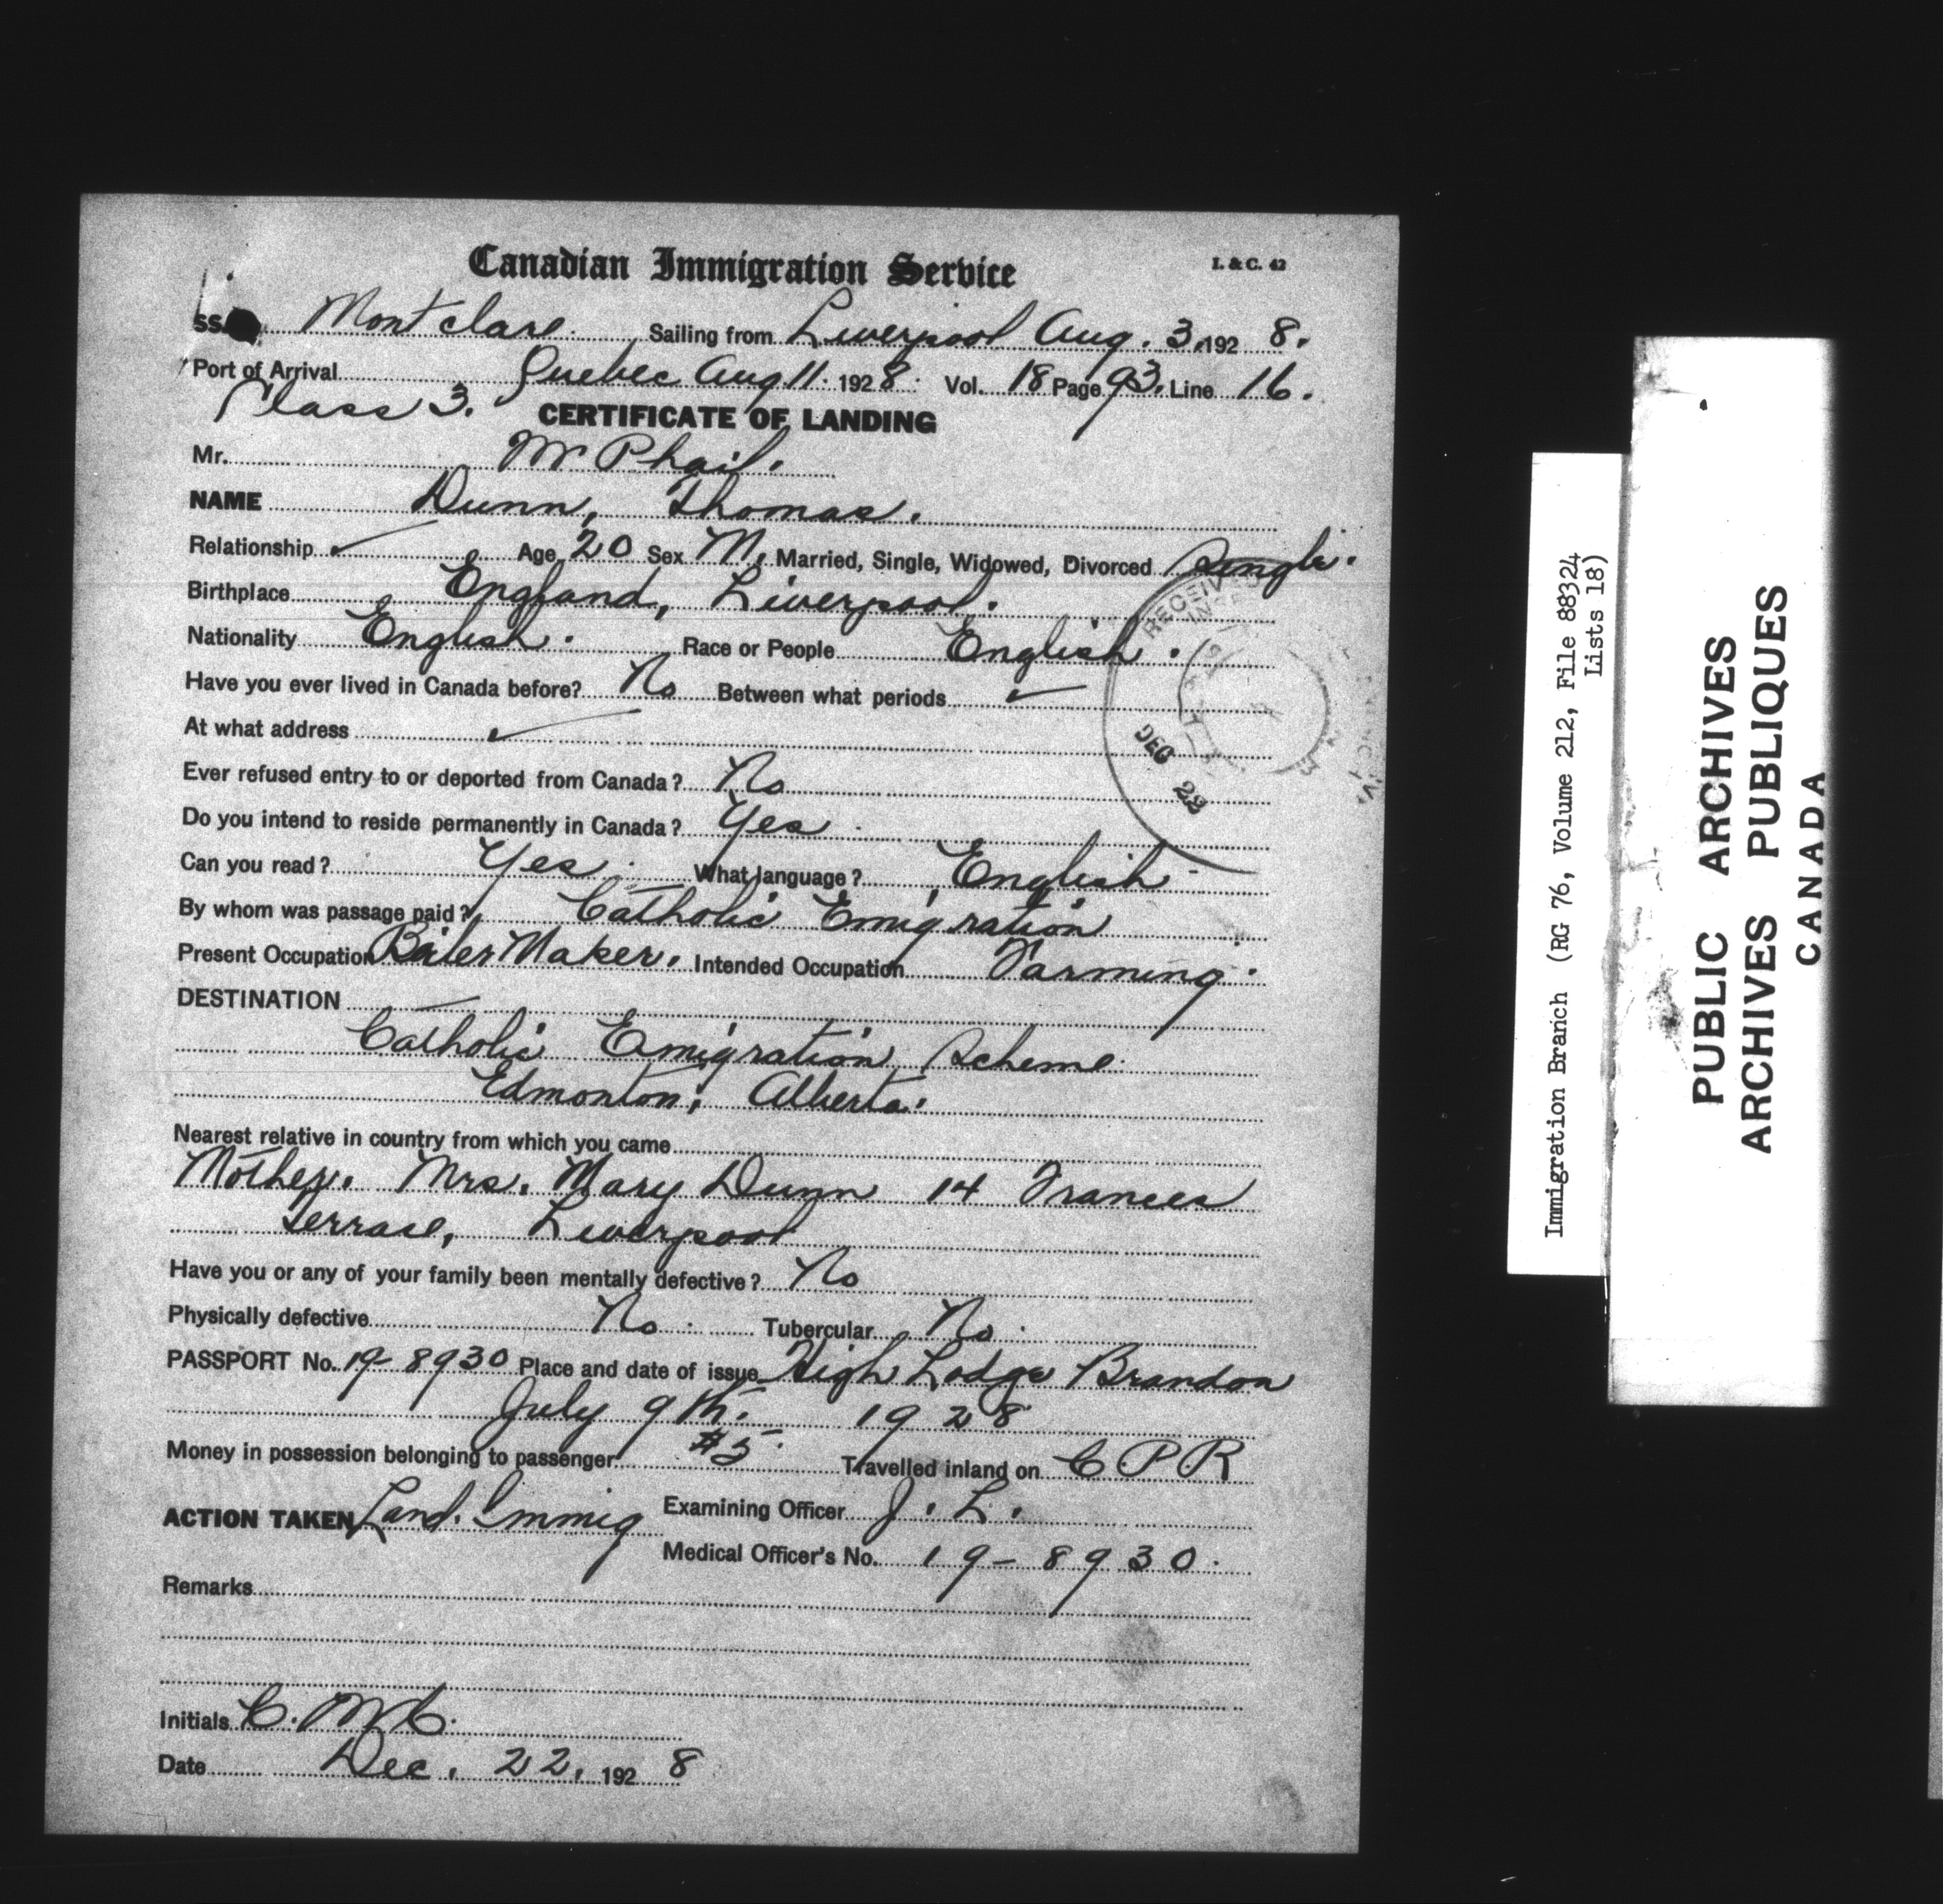 Canadian Immigration Service
I. & C. 42
SS. Montclare. Sailing from Liverpool Aug. 3. 192 8.
Port of Arrival Quebec Aug 11. 192 8. Vol. 18 Page 93. Line 16.
Class 3.
CERTIFICATE OF LANDING
Mr. McPhail.
NAME Dunn, Thomas.
Relationship ✓ Age 20 Sex M. Married, Single, Widowed, Divorced Single.
Birthplace England, Liverpool.
Nationality English. Race or People English.
Have you ever lived in Canada before? No Between what periods ✓
At what address ✓
Ever refused entry to or deported from Canada? No
Do you intend to reside permanently in Canada? Yes
Can you read? Yes What language? English
By whom was passage paid? Catholic Emigration
Present Occupation Boiler Maker. Intended Occupation Farming.
DESTINATION
Catholic Emigration Scheme
Edmonton, Alberta.
Nearest relative in country from which you came
Mother. Mrs. Mary Dunn 14 Frances
Terrace, Liverpool
Have you or any of your family been mentally defective? No
Physically defective No. Tubercular No.
PASSPORT No. 19-8930 Place and date of issue High Lodge Brandon
July 9th. 1928
Money in possession belonging to passenger $5. Travelled inland on C P R
ACTION TAKEN Land. Immig Examining Officer J. L.
Medical Officer's No. 19-8930.
Remarks
Initials C. McC.
Date Dec. 22, 192 8
RECEIV
DEC 22
Immigration Branch (RG 76, Volume 212, File 88324
Lists 18)
PUBLIC ARCHIVES
ARCHIVES PUBLIQUES
CANADA